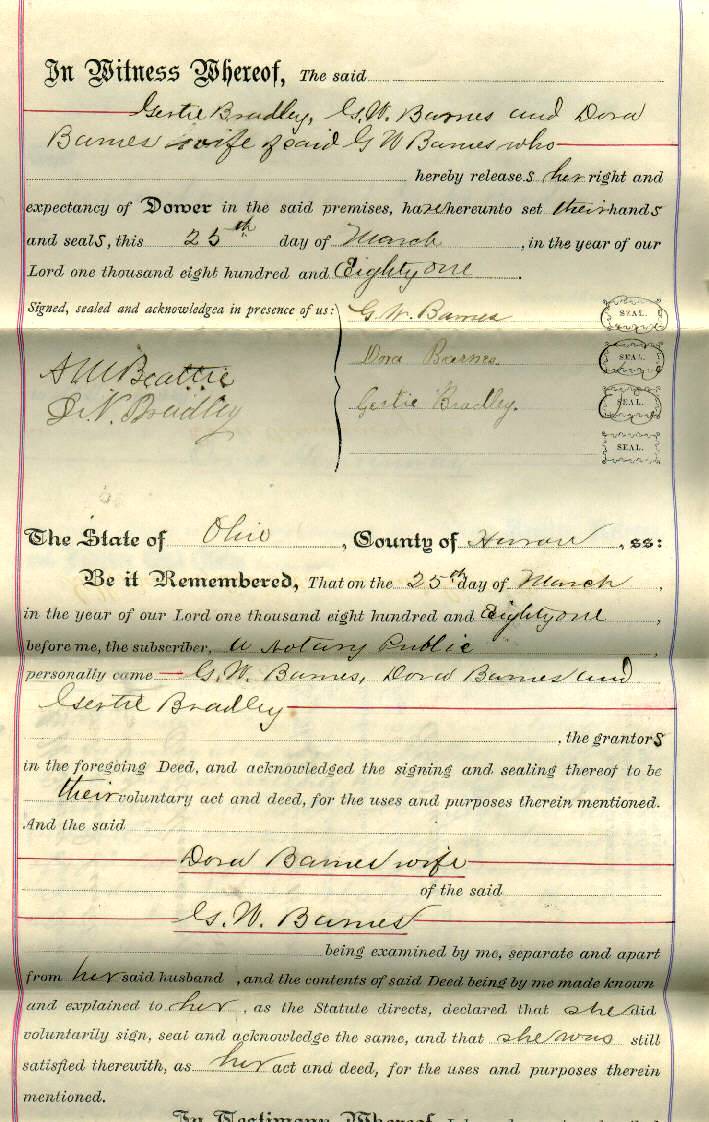 In Witness Whereof, The said
Gertie Bradley, G.W. Barnes and Dora
Barnes wife of said G W Barnes who
hereby releases her right and
expectancy of Dower in the said premises, have hereunto set their hands
and seals, this 25th day of March, in the year of our
Lord one thousand eight hundred and Eighty one.
Signed, sealed and acknowledged in presence of us:
G. W. Barnes SEAL.
Dora Barnes. SEAL.
A M Beattie
Gertie Bradley. SEAL.
Bradley
SEAL.
The State of Ohio, County of Huron, ss:
Be it Remembered, That on the 25th day of March,
in the year of our Lord one thousand eight hundred and Eighty one,
before me, the subscriber, a Notary Public,
personally came G. W. Barnes, Dora Barnes and
Gertie Bradley
, the grantors
in the foregoing Deed, and acknowledged the signing and sealing thereof to be
their voluntary act and deed, for the uses and purposes therein mentioned.
And the said
Dora Barnes wife
of the said
G. W. Barnes
being examined by me, separate and apart
from her said husband, and the contents of said Deed being by me made known
and explained to her, as the Statute directs, declared that she did
voluntarily sign, seal and acknowledge the same, and that she was still
satisfied therewith, as her act and deed, for the uses and purposes therein
mentioned.
In Testimony Whereof,